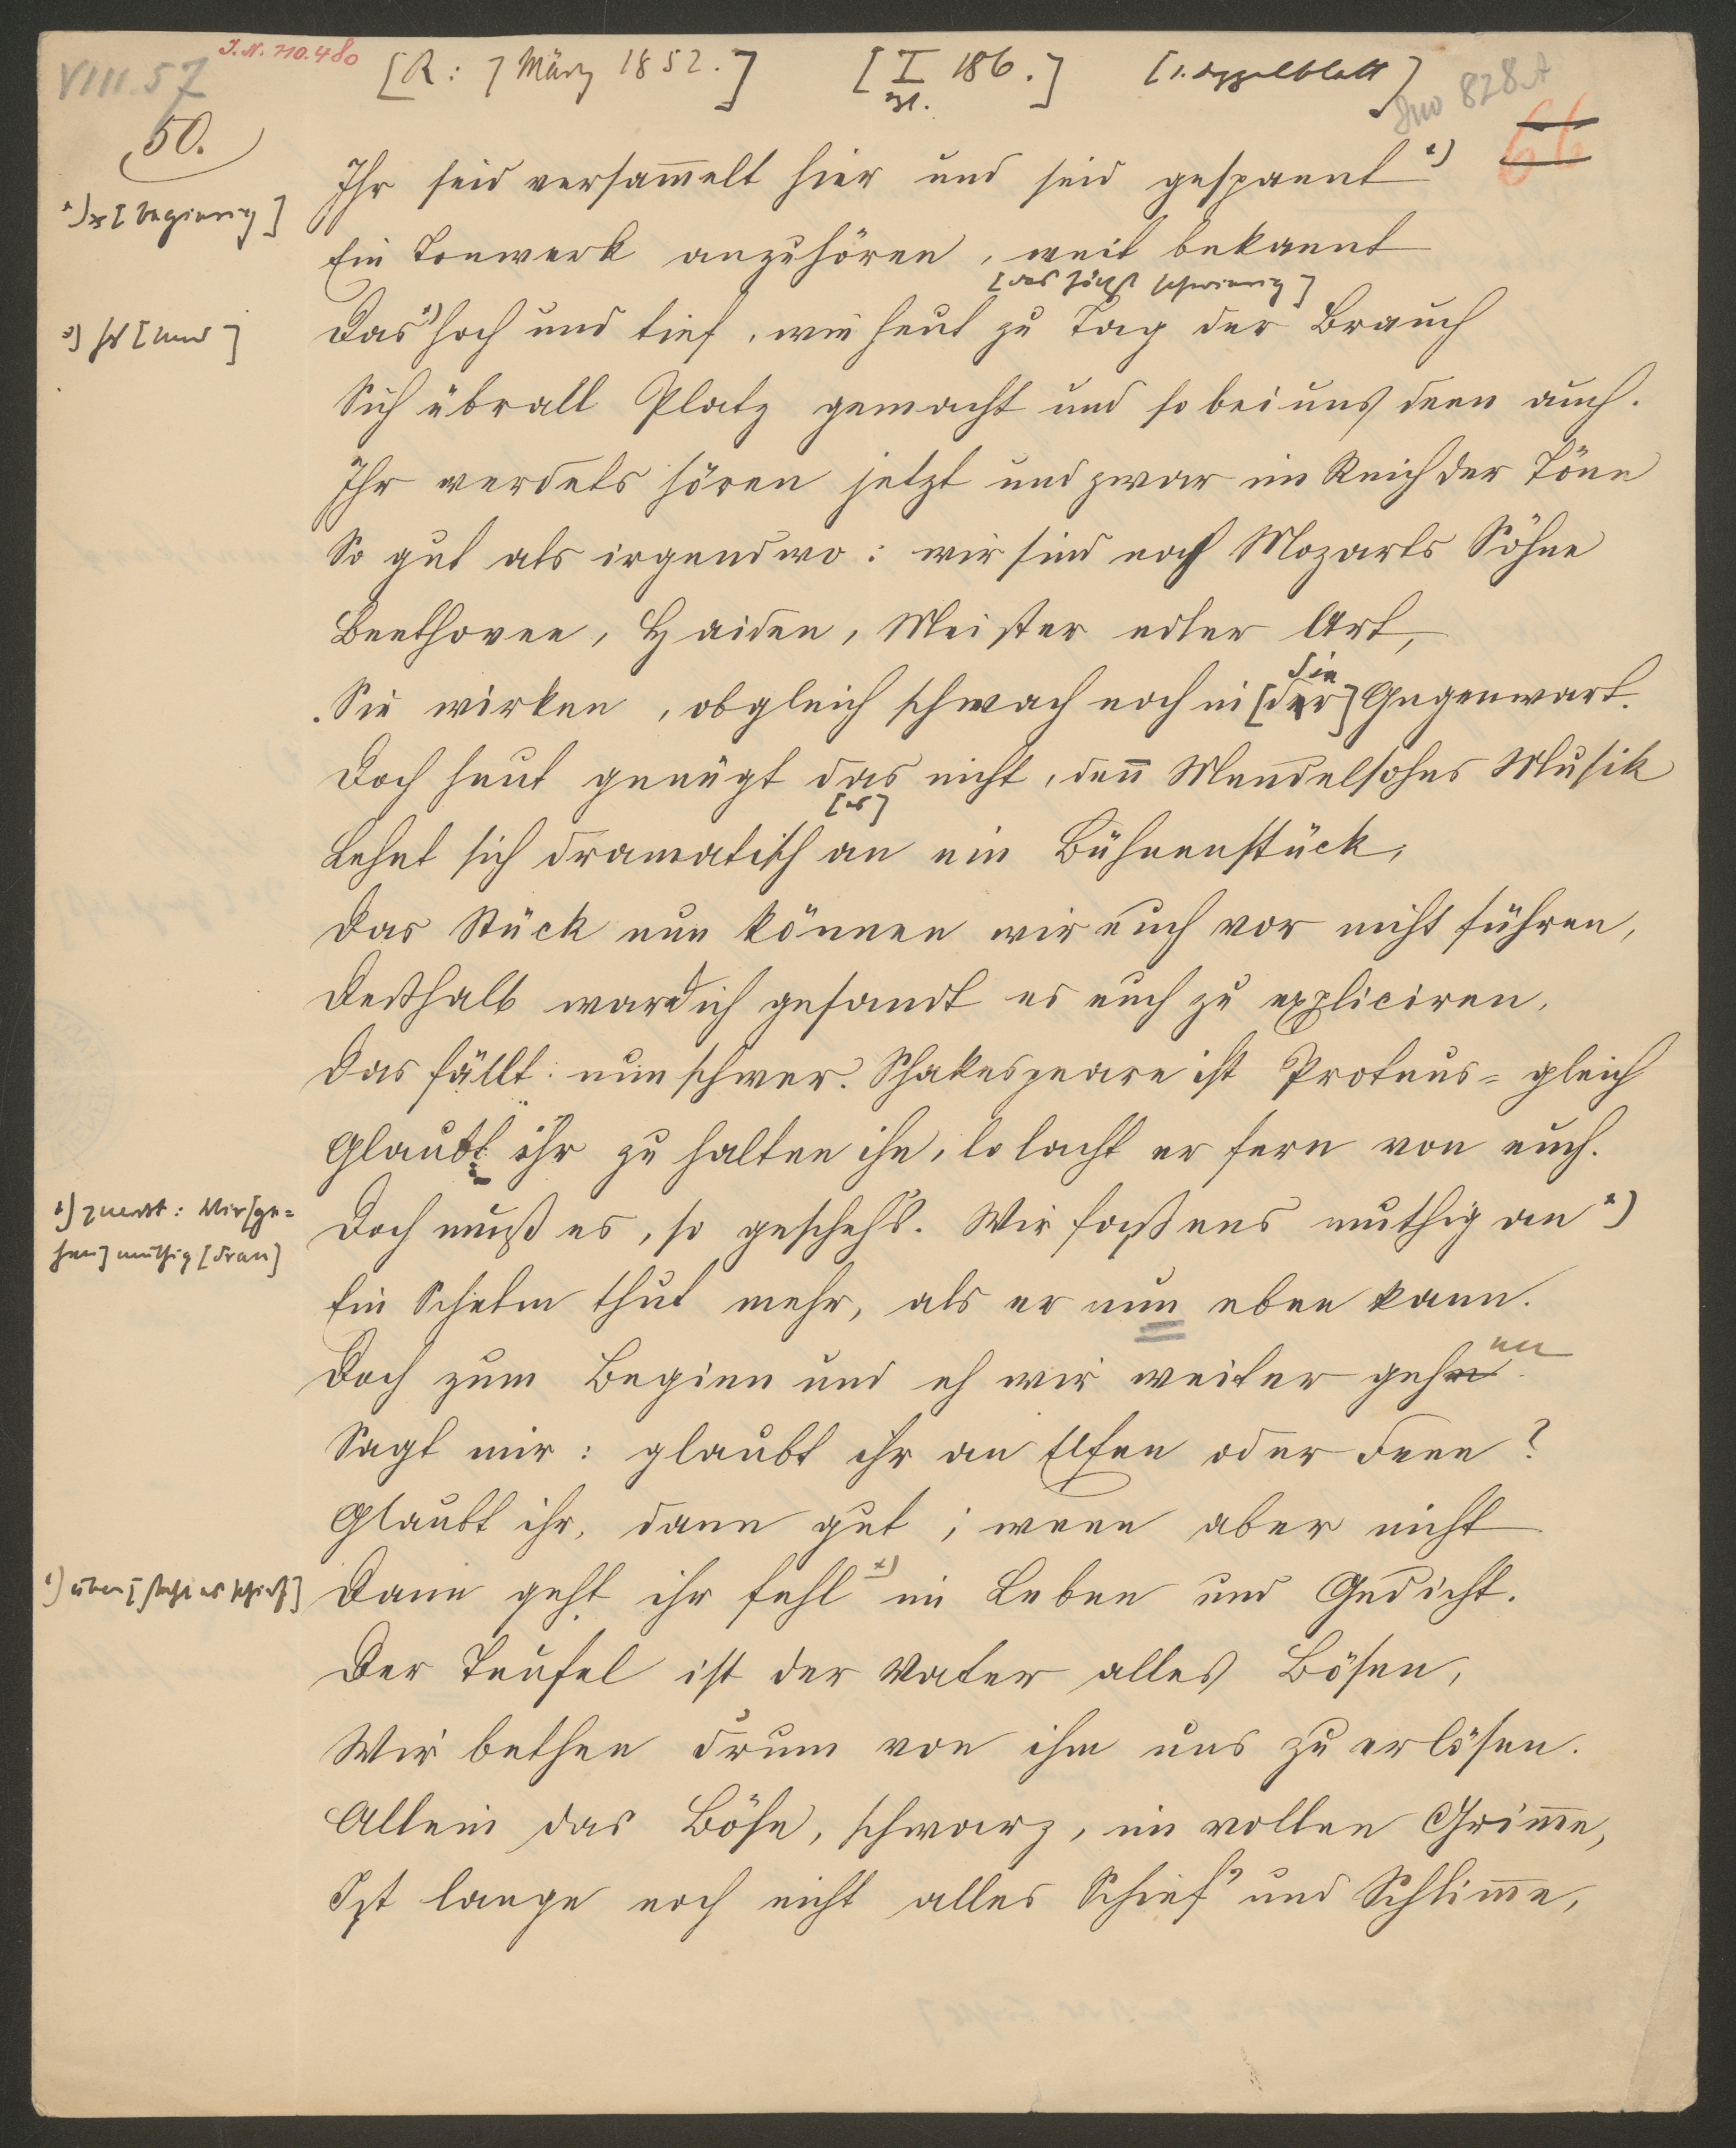 VIII.57
J.N. 710.480
[R: 7 März 1852.]
[I 186.]
[1. Doppelblatt]
828 A
66
50.
Ihr seid versam̅elt hier und seid gespannt x)
x) [begierig]
Ein Tonwerk anzuhören, weit bekannt
[das höchst schwierig]
Das x) hoch und tief, wie heut zu Tag der Brauch
x) [und]
Sich übrall Platz gemacht und so bei uns denn auch.
Ihr werdets hören jetzt und zwar im Reich der Töne
So gut als irgendwo: wir sind noch Mozarts Söhne
Beethoven, Haiden, Meister edler Art,
die
Sie wirken, obgleich schwach noch in [der] Gegenwart.
Doch heut genügt das nicht, den̅ Mendelsohns Musik
[es]
Lehnt sich dramatisch an ein Bühnenstück,
Das Stück nun können wir euch vor nicht führen,
Deßhalb ward ich gesandt es euch zu expliciren,
Das fällt nun schwer. Schakespeare ist Proteus-gleich
Glaubt ihr zu halten ihn, so lacht er fern von euch.
Doch muß es, so gescheh's. Wir faßens muthig an x)
x) zuerst: Wir [ge=
hen] muthig [dran]
Ein Schelm thut mehr, als er nun eben kann.
Doch zum Beginn und eh wir weiter gehn
en
Sagt mir: glaubt ihr an Elfen oder Feen?
Glaubt ihr, dann gut; wenn aber nicht
Dann geht ihr fehl x) im Leben und Gedicht.
x) über [steht es schief]
Der Teufel ist der Vater alles Bösen,
Wir bethen drum von ihm uns zu erlösen.
Allein das Böse, schwarz, im vollen Grim̅e,
Ist lange noch nicht alles Schief' und Schlim̅e,